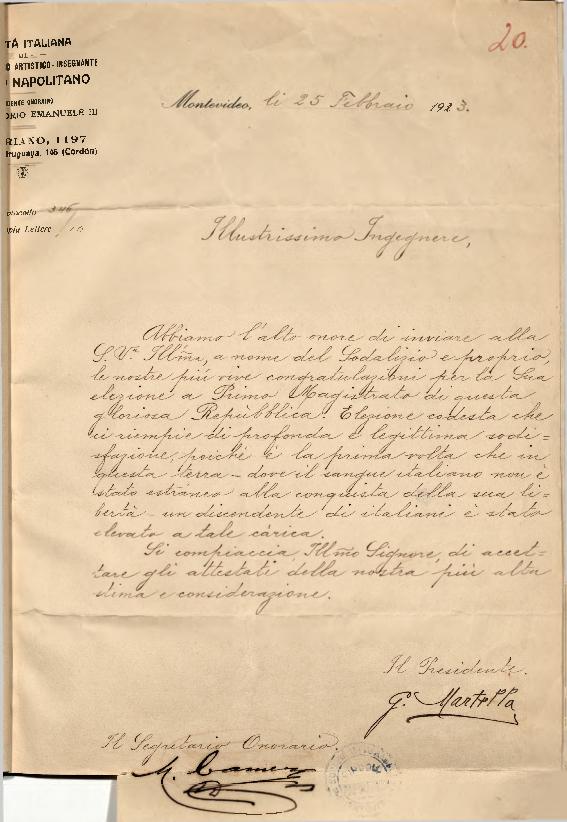 TÁ ITALIANA
DI
O ARTISTICO-INSEGNANTE
NAPOLITANO
IDENTE ONORARIO
ORIO EMANUELE III
RIANO, 1197
Uruguaya, 145 (Cordón)
otocollo 346
opia Lettere
20.
Montevideo, li 25 Febbraio 1923.
Illustrissimo Ingegnere,
Abbiamo l'alto onore di inviare alla
S. Va. Illma, a nome del Sodalizio e proprio,
le nostre più vive congratulazioni per la Sua
elezione a Primo Magistrato di questa
gloriosa Repubblica. Elezione codesta che
ci riempie di profonda e legittima sodi=
sfazione, poichè è la prima volta che in
questa terra - dove il sangue italiano non è
stato estraneo alla conquista della sua li=
bertà - un discendente di italiani è stato
elevato a tale cárica.
Si compiaccia, Illmo Signore, di accet=
tare gli attestati della nostra più alta
stima e considerazione.
Il Presidente.
G. Martella
Il Segretario Onorario.
M.